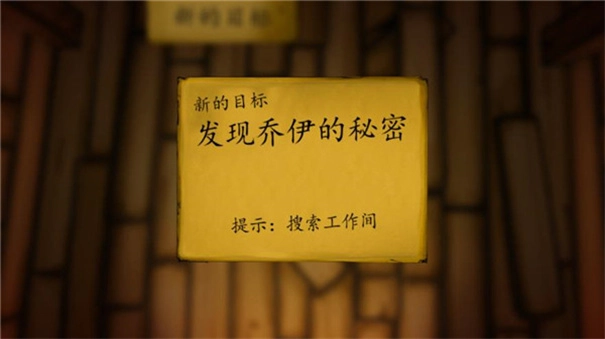 新的目标
新的目标
发现乔伊的秘密
提示：搜索工作间